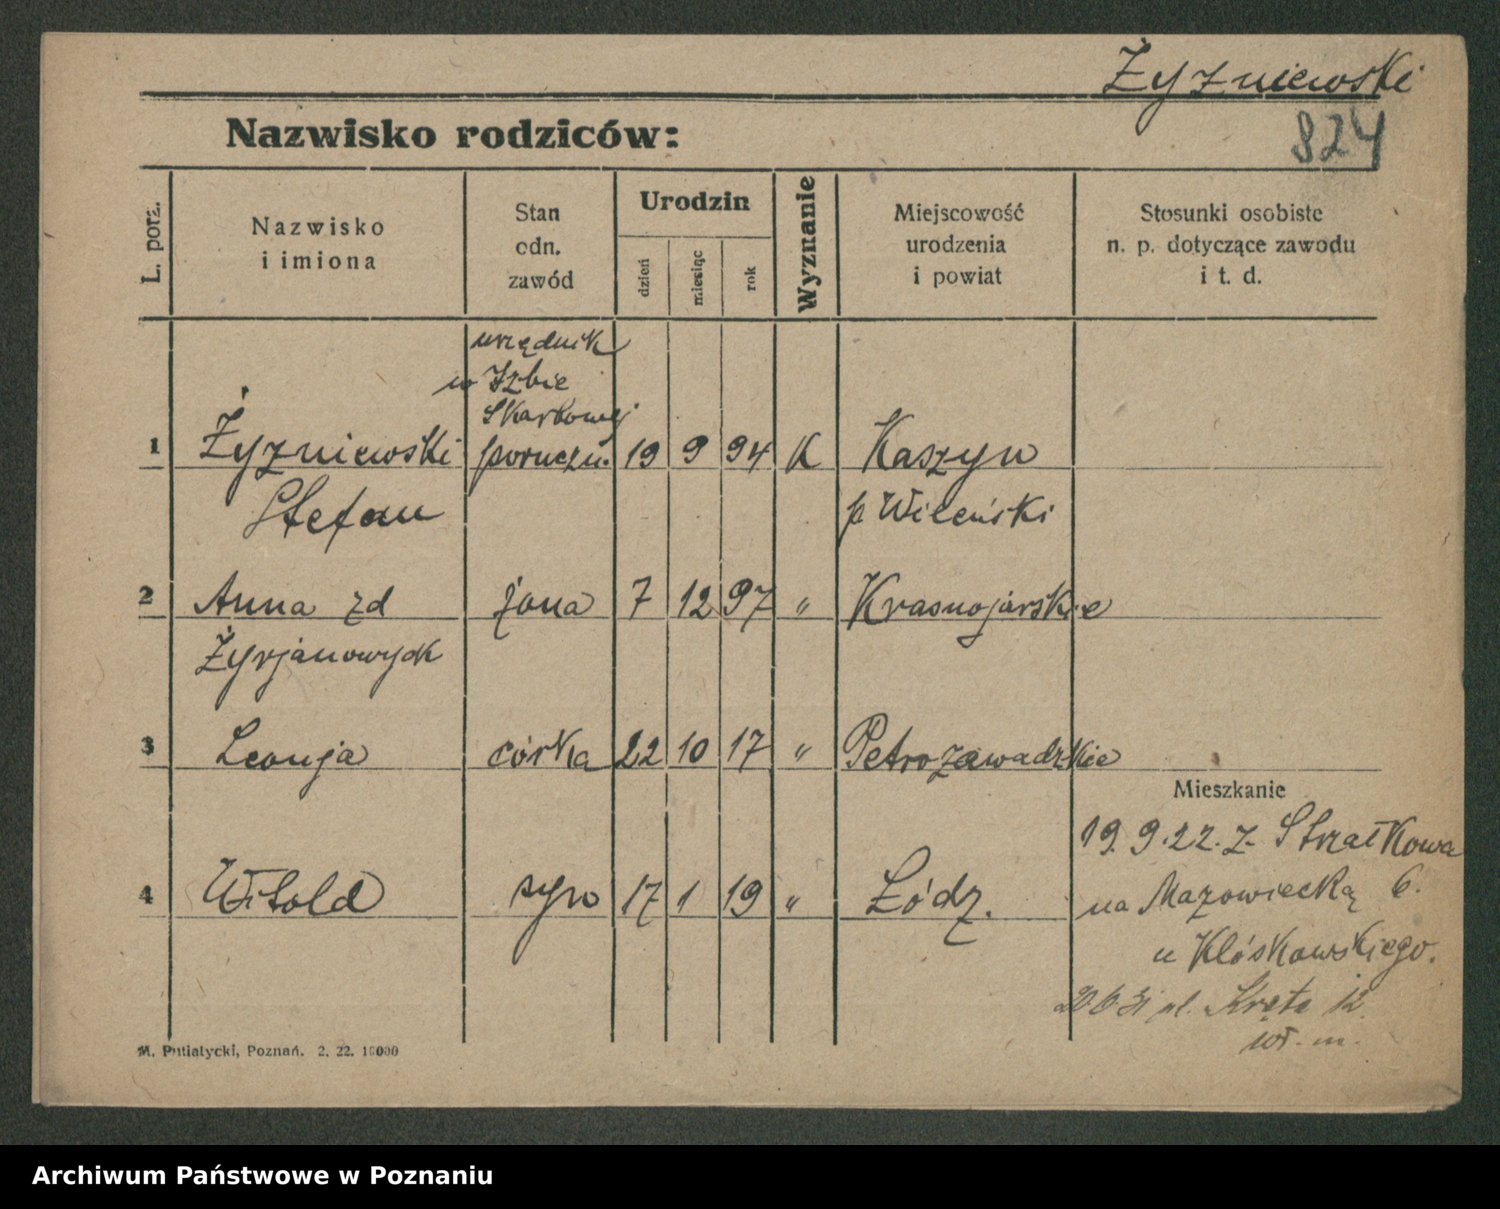 Żyzniewski
824
Nazwisko rodziców:
L. porz.
Nazwisko
i imiona
Stan
odn.
zawód
Urodzin
dzień
miesiąc
rok
Wyznanie
Miejscowość
urodzenia
i powiat
Stosunki osobiste
n. p. dotyczące zawodu
i t. d.
urzędnik
w Izbie
Skarbowej
1 Żyzniewski poruczn. 19 9 94 K Kaszyn
Stefan p Wileński
2 Anna zd żona 7 12 97 " Krasnojarskie
Żyrjanowych
3 Leonja córka 22 10 17 " Petrozawadzkie
Mieszkanie
19.9.22. z Strzałkowa
4 Witold syn 17 1 19 " Łódz.
na Mazowiecką 6.
u Kłóskowskiego.
20.6.31 ul. Kręta 12
wł. m.
M. Putiatycki, Poznań. 2. 22. 10000
Archiwum Państwowe w Poznaniu